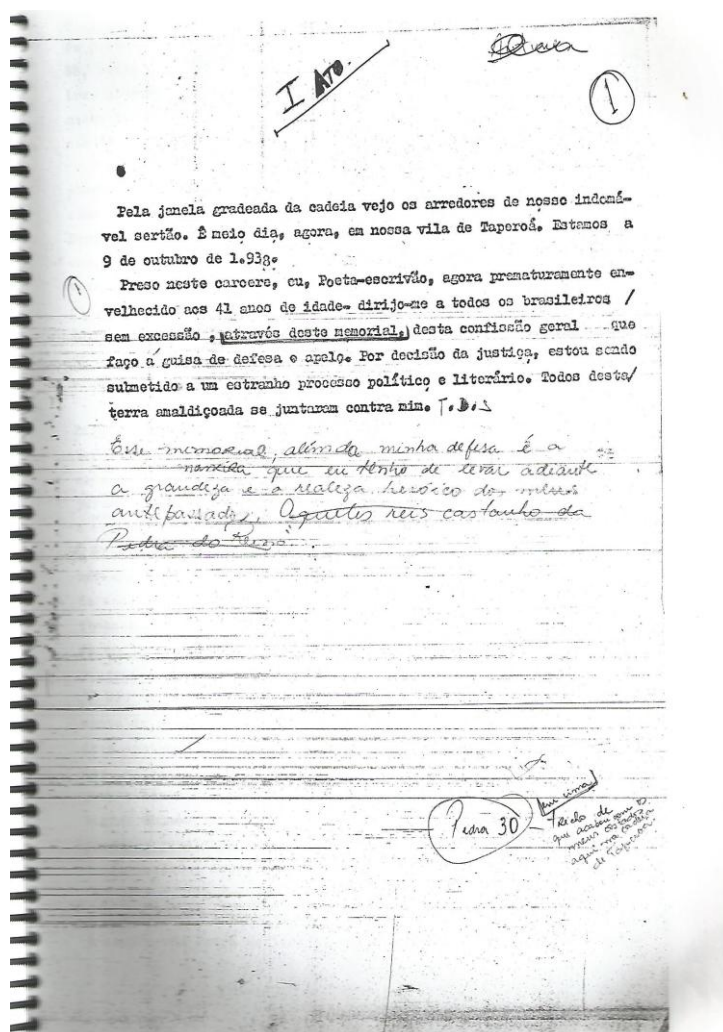 I ATO.
1
Pela janela gradeada da cadeia vejo os arredores de nosso indomá-
vel sertão. É meio dia, agora, em nossa vila de Taperoá. Estamos a
9 de outubro de 1.938.
1
Preso neste carcere, eu, Poeta-escrivão, agora prematuramente en-
velhecido aos 41 anos de idade- dirijo-me a todos os brasileiros /
sem excessão , através deste memorial, desta confissão geral que
faço á guisa de defesa e apelo. Por decisão da justiça, estou sendo
submetido a um estranho processo político e literário. Todos desta/
terra amaldiçoada se juntaram contra mim. TODOS
Esse memorial, além da minha defesa é a
maneira que eu tenho de levar adiante
a grandeza e a realeza heróico dos meus
antepassados, Aqueles reis castanho da
Pedra do Reino".
em cima
Pedra 30 - trecho de
que acabou com os
meus costados
aqui na cadeia
de Taperoá